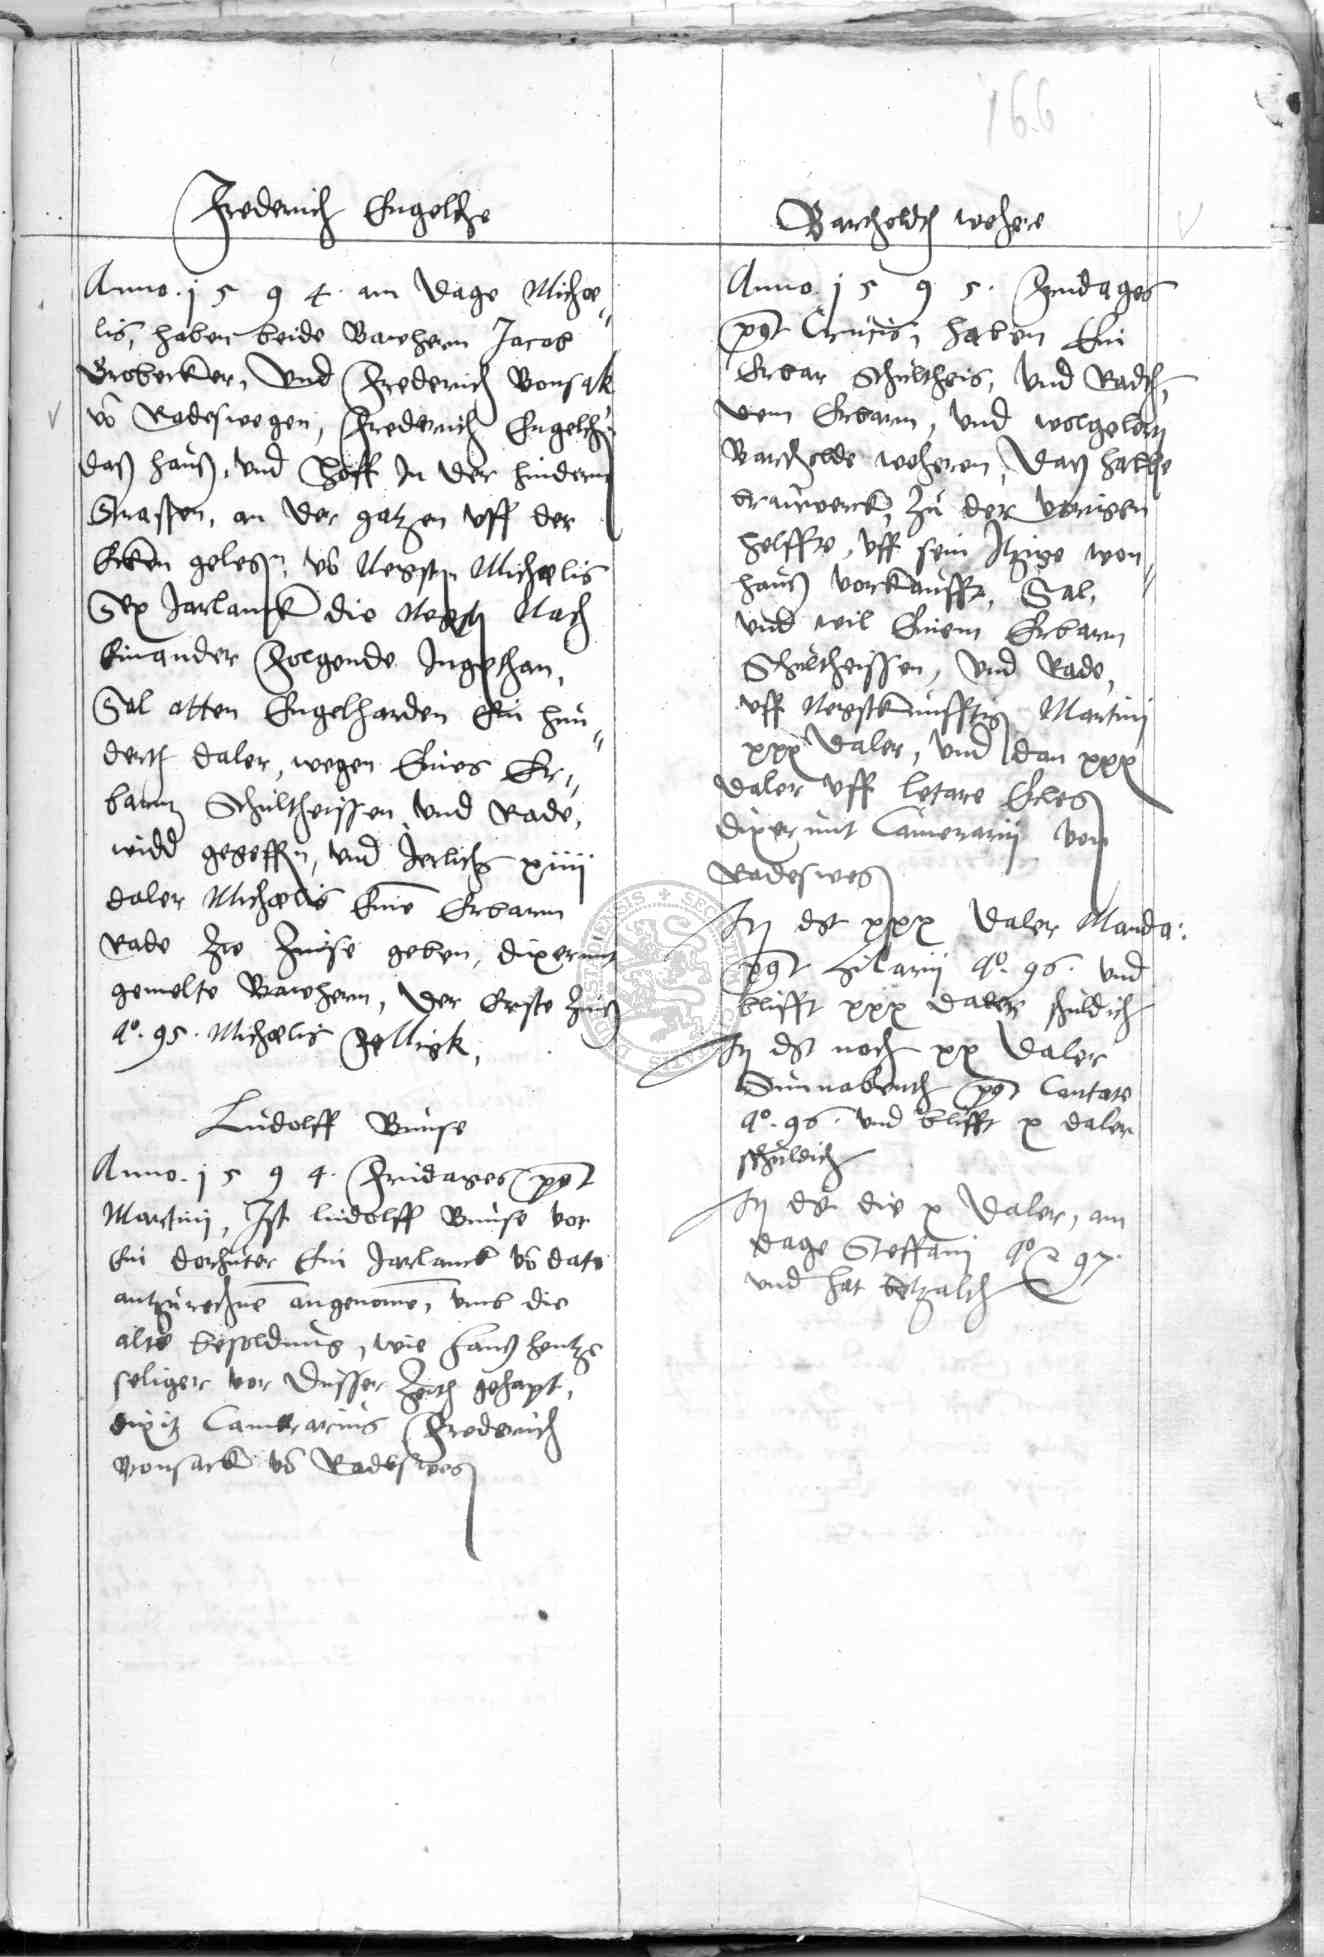 166
Frederich Engelche
Anno. 1 5 9 4. am dage Michae„
lis, haben beide Bawhern Jacob
Brobecker, Und Frederich Bonsak
vō Radeswegen, Frederich Engelch
daß hauß, und hoff In der hindern
Strassen, an der gatzen uff der
Ecken gelegn, vō Negstn Michaelis
Sex Jarlanck die Negst Nach
Einander Folgende Ingethan,
Sal Otten Engelharden Ein hun„
derth daler, wegen Eines Er„
barn Schultheissen und Rade,
widd geseffn, und Jerlichs xiiii
daler Michaelis Einē Erbarn
Rade Zu Zinse geben, dixerunt
gemelte Bawhern, der Erste Zinß
Aº. 95. Michaelis Felligk,
Ludolff Bunse
Anno. 1 5 9 4. Fridages post
Martini, Ist Ludolff Bunse vor
Ein dorhuter Ein Jarlanck vō dato
antzurechnē angenomē, umb die
alte besoldung, wie Hans Hentze
seliger vor Dusser Zeith gehapt,
dixit Camerarius Frederich
Bonsack vō Radesweg
Bartholdth wehere
Anno. 1 5 9 5. Fridages
post Crucis, haben Ein
Erbar Schultheis, Und Radth,
dem Erbarn, und wolgelertn
Bartholde weheren, Daß halbe
brauwerck, Zu der vorigen
helffte, uff sein Itzige won„
hauß vorkaufft, Sal,
und wil Einem Erbarn
Schultheissen, Und Rade,
uff Negstkunfftig Martini
xxx daler, und dan xxx
daler uff letare Erleg
dixerunt Camerarii von
Radesweg
It dt xxx daler Manda:
post Hilarii Aº. 96. und
blifft xxx daler schuldich
It dt noch xx daler
Sunnabenth post Cantate
Aº. 96. und blifft x daler
schuldich
It dt die x daler, am
dage Steffani Aº 97.
und hat betzalth